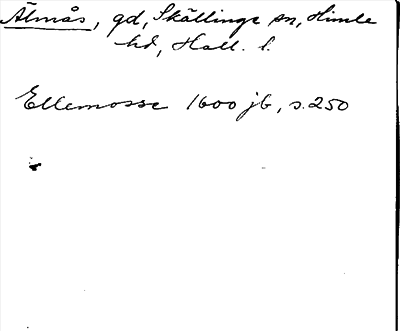 Älmås, gd, Skällinge sn, Himle
hd, Hall. l.
Ellemosse 1600 jb, s. 250